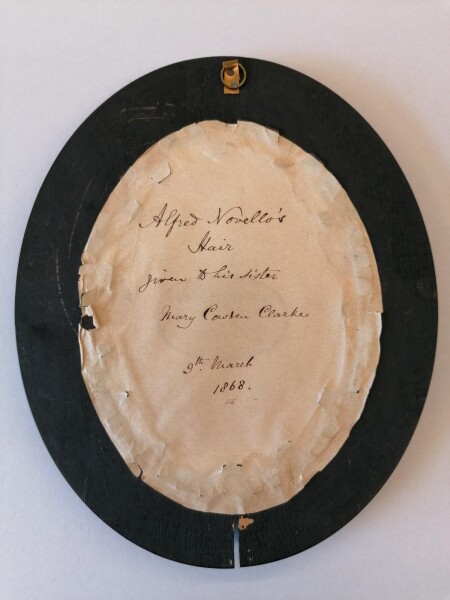 Alfred Novello's
Hair
given to his sister
Mary Cowden Clarke
9th. March
1868.